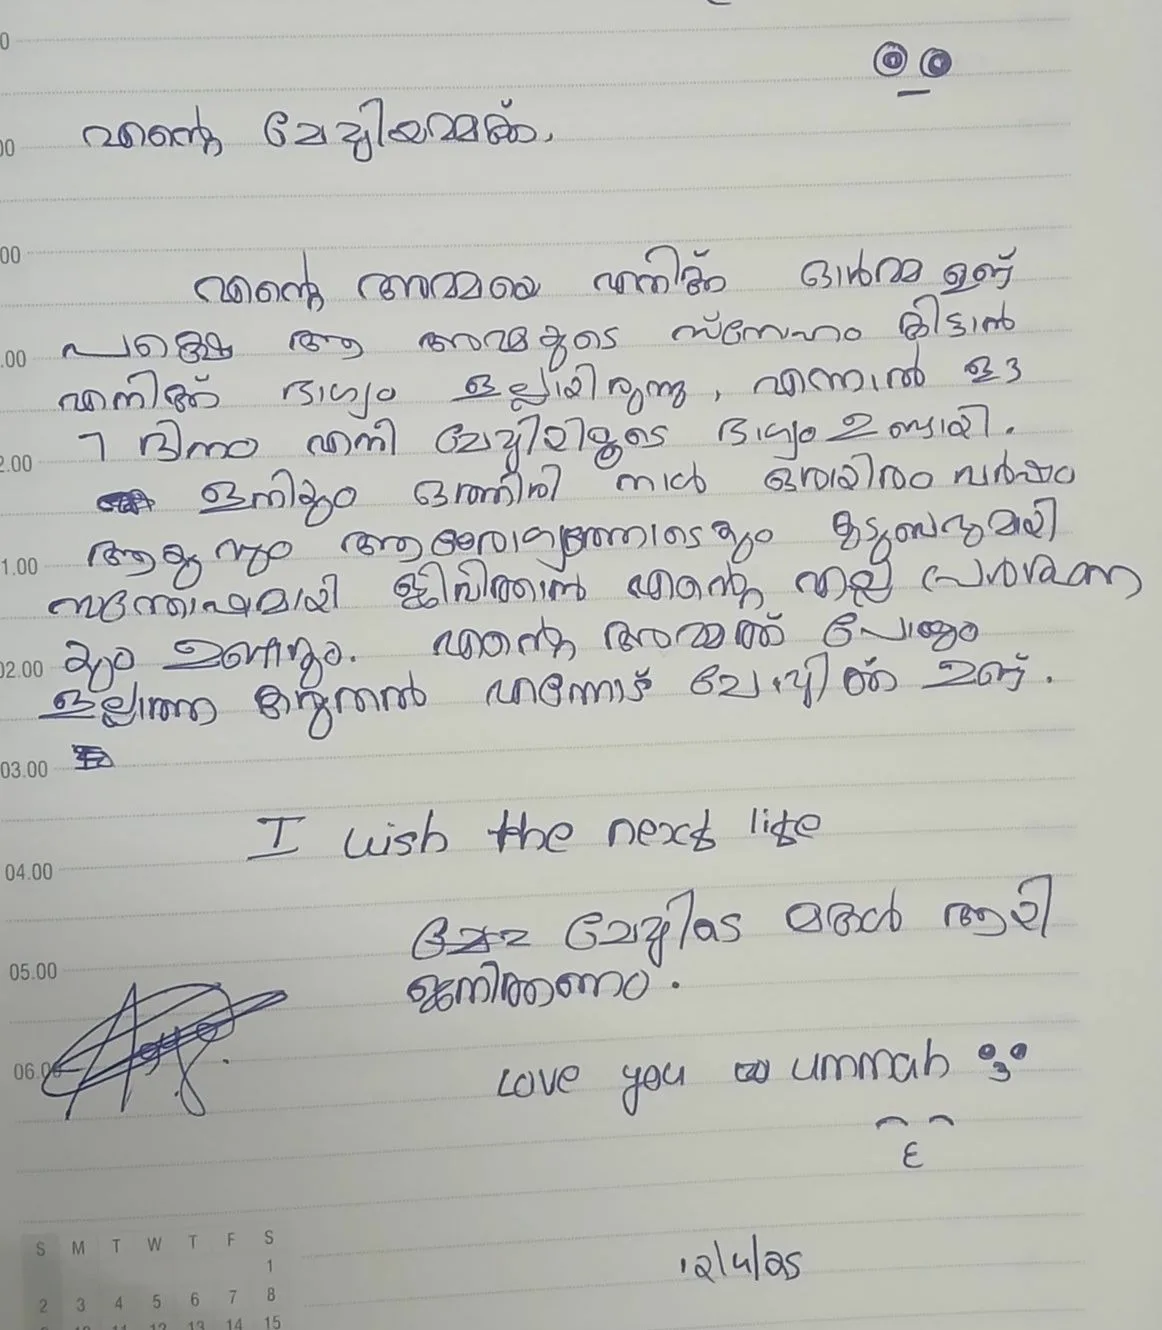 എന്റെ ചേച്ചിയമ്മക്ക്,
എന്റെ അമ്മയെ എനിക്ക് ഓർമ്മ ഉണ്ട്
പക്ഷെ ആ അമ്മയുടെ സ്നേഹം കിട്ടാൻ
എനിക്ക് ഭാഗ്യം ഇല്ലായിരുന്നു, എന്നാൽ ഈ
7 ദിനം എനി ചേച്ചിയിലൂടെ ഭാഗ്യം ഉണ്ടായി.
ഇനിയും ഒത്തിരി നാൾ ഒരായിരം വർഷം
ആയുസ്സും ആരോഗ്യത്തോടെയും കുടുംബവുമായി
സന്തോഷമായി ജീവിക്കാൻ എന്റെ എല്ലാ പ്രാർത്ഥന
യും ഉണ്ടാവും. എന്റെ അമ്മക്ക് പോലും
ഇല്ലാത്ത കരുതൽ എന്നോട് ചേച്ചിക്ക് ഉണ്ട്.
I wish the next life
ചേച്ചിടെ മകൾ ആയി
ജനിക്കണം.
Love you ummah
12/4/25
00
.00
2.00
1.00
02.00
03.00
04.00
05.00
S M T W T F S
1
2 3 4 5 6 7 8
13 14 15